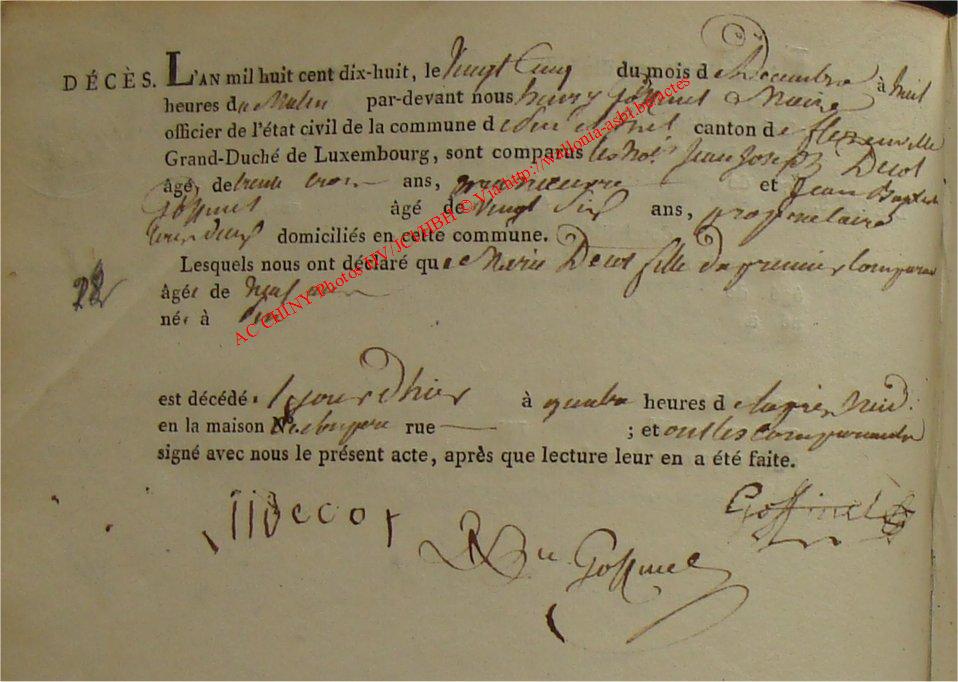 DÉCÈS. L'AN mil huit cent dix-huit, le Vingt Cinq du mois de Decembre à huit
heures du Matin par-devant nous henry Goffinet Maire
officier de l'état civil de la commune d canton de florenville
Grand-Duché de Luxembourg, sont comparus Jean Joseph Decot
âgé de trente trois ans, et Jean Baptiste
Goffinet âgé de Vingt Six ans, proprietaire
tous deux domiciliés en cette commune.
Lesquels nous ont déclaré que Marie Decot fille du premier Comparant
28
âgée de ans
née à
est décédé le jour d'hier à quatre heures de lapres midi.
en la maison N.° rue ; et ont les comparants
signé avec nous le présent acte, après que lecture leur en a été faite.
JJDecot
Goffinet
Goffinet
AC CHINY Photos GV/JCVHBH © Via http://wallonia-asbl.be/actes